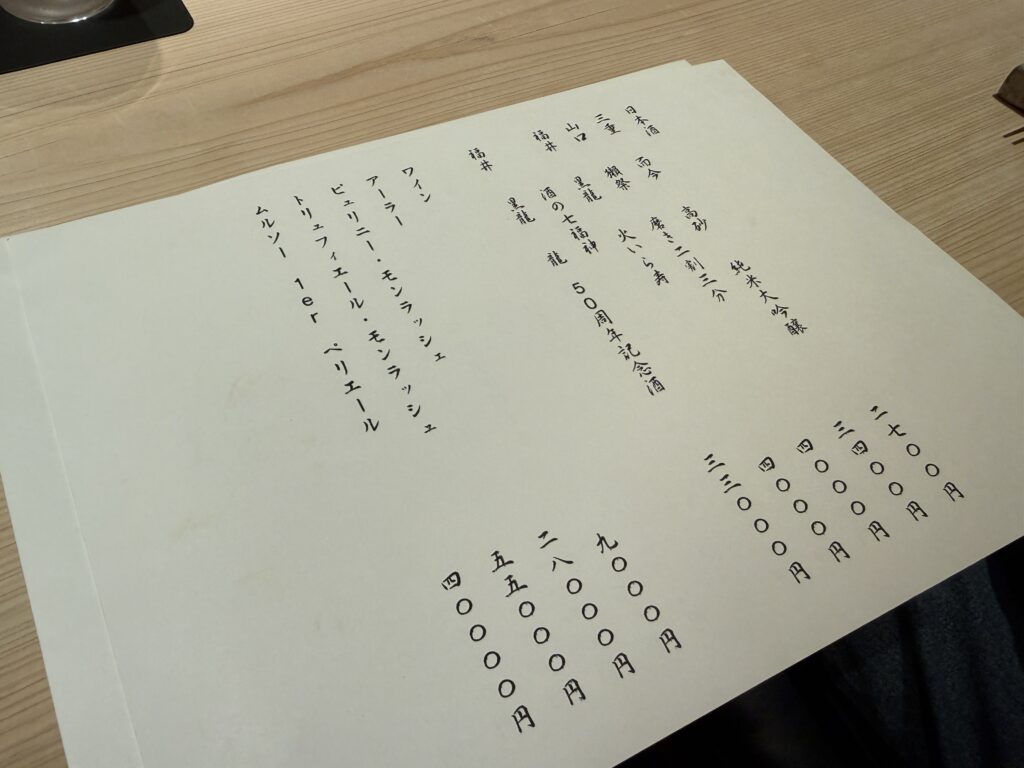 日本酒
三重 而今 高砂 純米大吟醸 二七〇〇円
山口 獺祭 磨き二割三分 三四〇〇円
福井 黒龍 火いら寿 四〇〇〇円
酒の七福神 四〇〇〇円
福井 黒龍 龍 50周年記念酒 三三〇〇〇円
ワイン
アーラー 九〇〇〇円
ピュリニー・モンラッシュ 二八〇〇〇円
トリュフィエール・モンラッシュ 五五〇〇〇円
ムルソー 1er ペリエール 四〇〇〇〇円